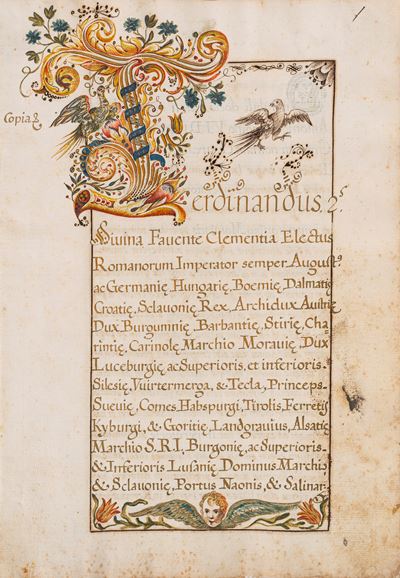 Copia &
Ferdinandus 2.s
Divina Favente Clementia Electus
Romanorum Imperator semper Augustꝰ
ac Germanię, Hungarię, Boemię, Dalmatię
Croatię, Sclavonię Rex, Archidux Austrię
Dux Burgunnię, Barbantię, Stirię, Cha-
rintię, Carinolę Marchio Moravię, Dux
Luceburgię, ac Superioris, et inferioris
Silesię, Vuirtemerga, & Tecla, Princeps
Suevię, Comes Habspurgi, Tirolis, Ferretis
Kyburgi, & Goritię, Landgravius, Alsatię
Marchio S.R.I. Burgonię, ac Superioris
& Inferioris Lusanię Dominus Marchię
& Sclavonię, Portus Naonis, & Salinar-